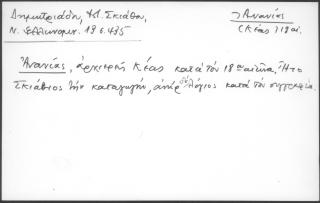 Δημητριάδη, Αλ. Σκιάθου,
Ν. Ελληνομν. 13 σ. 435
Ἀνανίας
(Κέας) 18 αἰ.
Ἀνανίας, ἀρχιερεὺς Κέας κατὰ τὸν 18ον αἰῶνα. Ἦτο
Σκιάθιος τὴν καταγωγήν, ἀνὴρ λόγιος κατὰ τὸν συγγραφέα.